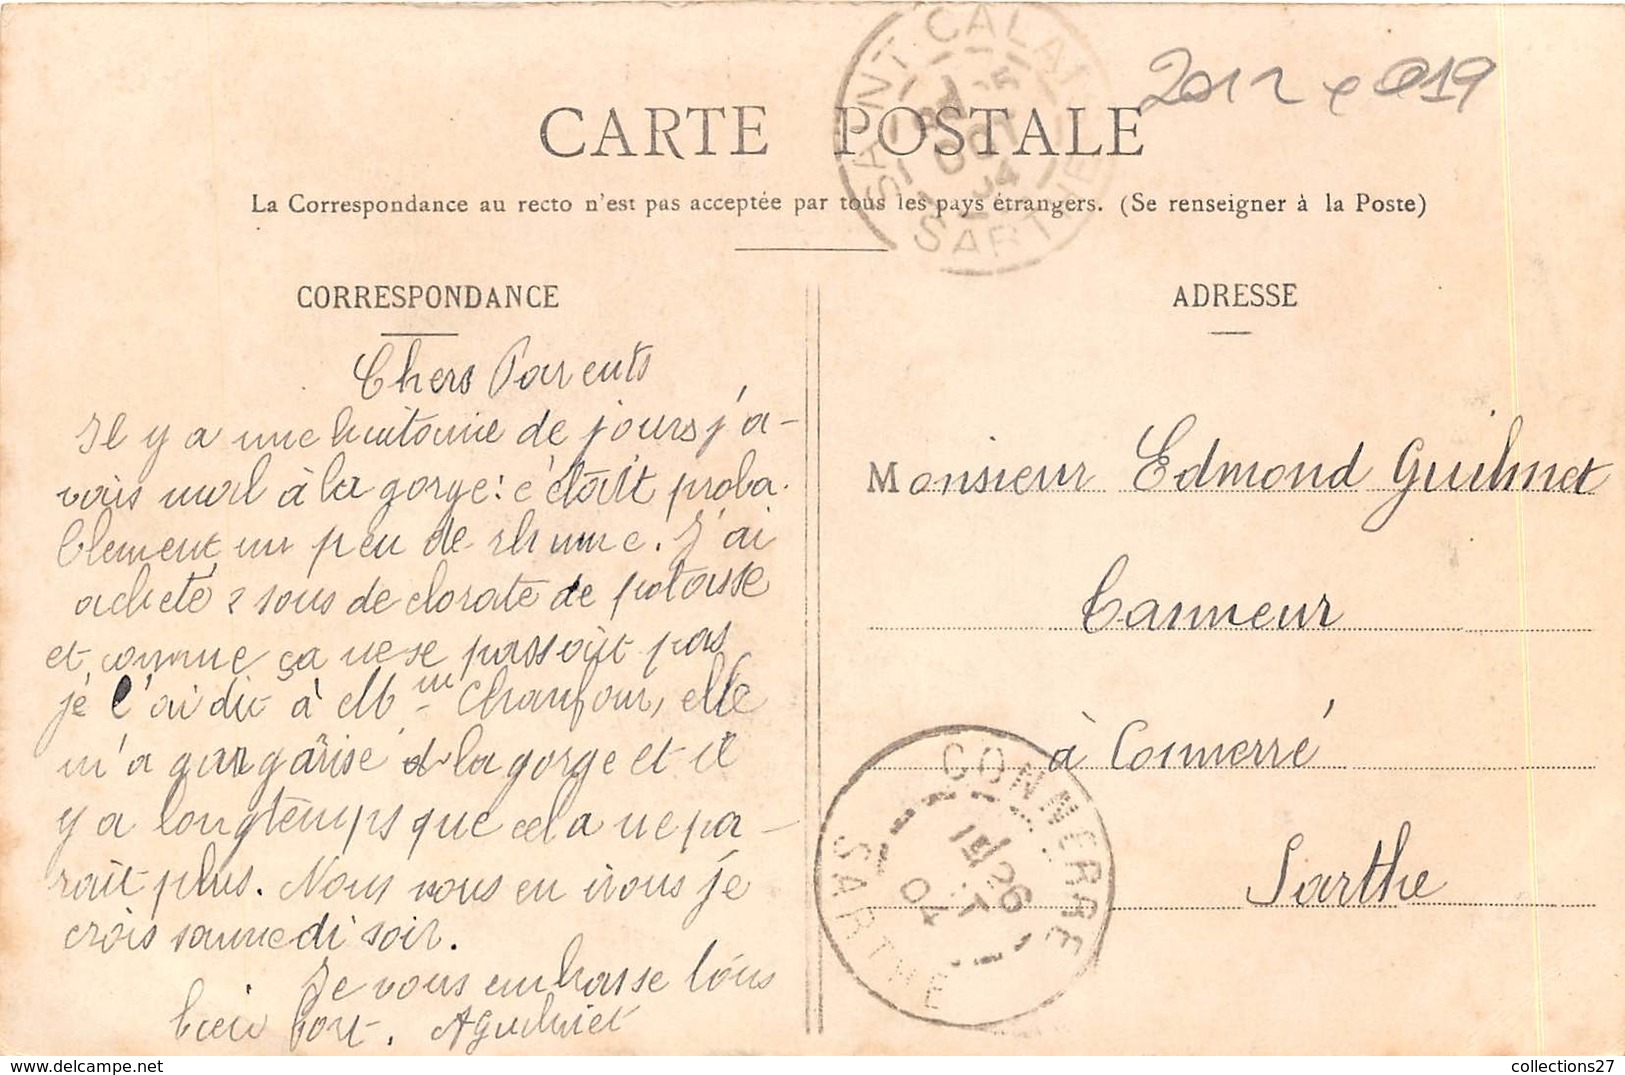 2012 e 019
CARTE POSTALE
La Correspondance au recto n'est pas acceptée par tous les pays étrangers. (Se renseigner à la Poste)
SAINT CALAIS
OCT
04
SARTHE
CORRESPONDANCE
Chers Parents
Il y a une huitaine de jours j'a-
vais mal à la gorge: c'était proba-
blement un peu de rhume. J'ai
acheté 2 sous de clorate de potasse
et comme ça ne se passait pas
je l'ai dit à Mme Chanfour, elle
m'a gargarisé la gorge et il
y a longtemps que cela ne pa-
rait plus. Nous nous en irons je
crois samedi soir.
Je vous embrasse tous
bien fort. A Guilmet
ADRESSE
Monsieur Edmond Guilmet
Tanneur
à Connerré
Sarthe
CONNERRE
15/26
04
SARTHE
collections27